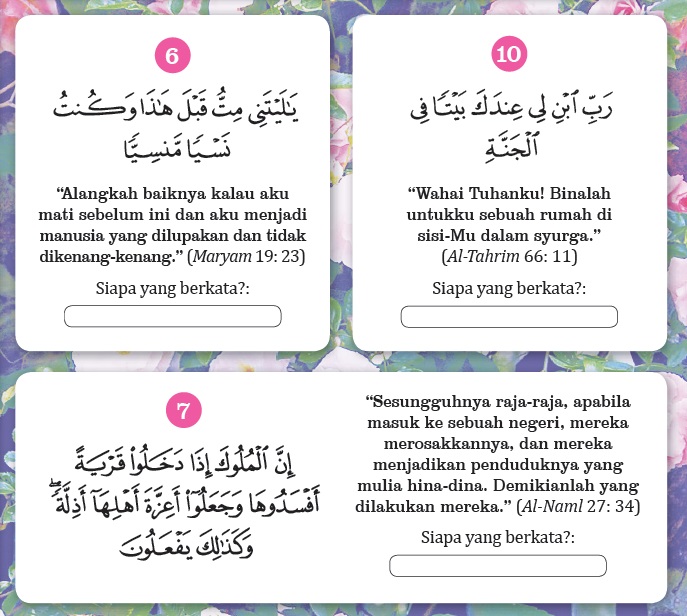 6
يَـٰلَيْتَنِى مِتُّ قَبْلَ هَـٰذَا وَكُنتُ
نَسْيًا مَّنسِيًّا
“Alangkah baiknya kalau aku
mati sebelum ini dan aku menjadi
manusia yang dilupakan dan tidak
dikenang-kenang.” (Maryam 19: 23)
Siapa yang berkata?:
10
رَبِّ ٱبْنِ لِى عِندَكَ بَيْتًا فِى
ٱلْجَنَّةِ
“Wahai Tuhanku! Binalah
untukku sebuah rumah di
sisi-Mu dalam syurga.”
(Al-Tahrim 66: 11)
Siapa yang berkata?:
7
إِنَّ ٱلْمُلُوكَ إِذَا دَخَلُوا۟ قَرْيَةً
أَفْسَدُوهَا وَجَعَلُوٓا۟ أَعِزَّةَ أَهْلِهَآ أَذِلَّةً ۖ
وَكَذَٰلِكَ يَفْعَلُونَ
“Sesungguhnya raja-raja, apabila
masuk ke sebuah negeri, mereka
merosakkannya, dan mereka
menjadikan penduduknya yang
mulia hina-dina. Demikianlah yang
dilakukan mereka.” (Al-Naml 27: 34)
Siapa yang berkata?: